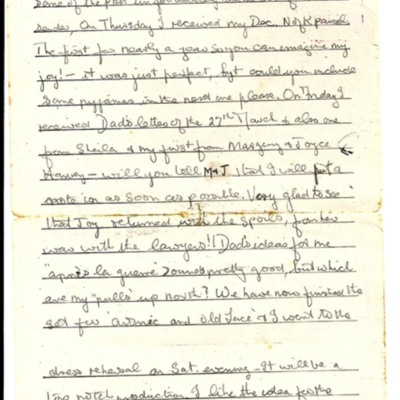 Some of the past
. On Thursday I received my Dec. N of K parcel
The first for nearly a year so you can imagine my
joy! – it was just perfect, but could you include
some pyjamas in the next one please. On Friday I
received Dad's letter of the 27th March & also one
from Sheila & my first from Margery & Joyce
Harvey – will you tell M & J that I will put a
note in as soon as possible. Very glad to see
that Joy returned with the spoils, for
was with the lawyers!! Dad's ideas for me
"après la guerre" sound pretty good, but which
are my "pulls" up north? We have now finished the
set for 'arsenic and old lace' & I went to the
dress rehearsal on Sat. evening – It will be a
top notch production. I like the idea for the